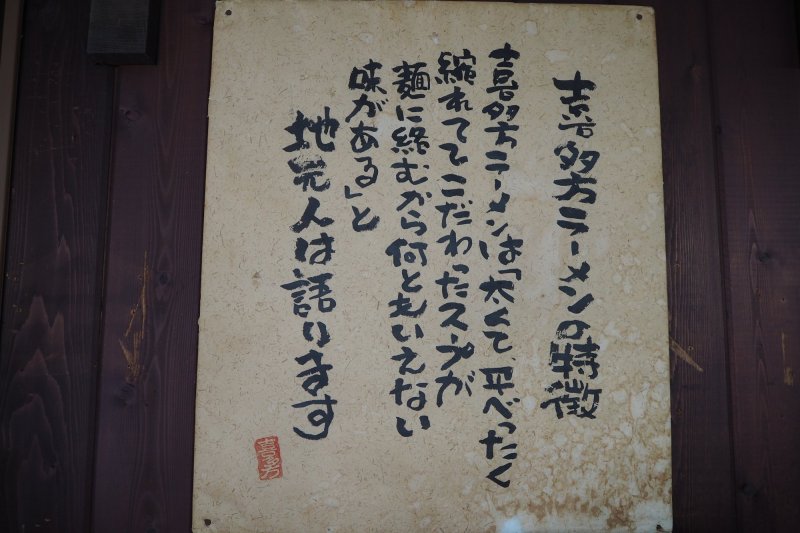 喜多方ラーメンの特徴
喜多方ラーメンは「太くて、平べったく
縮れててこだわったスープが
麺に絡むから何ともいえない
味がある」と
地元人は語ります
喜多方